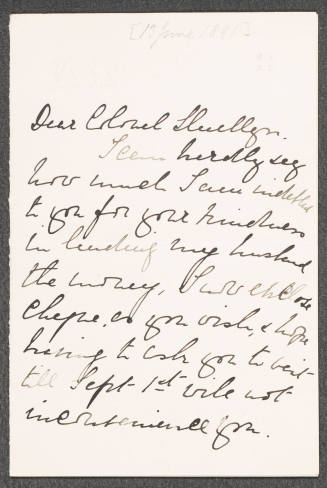 [13 June 1881]
Dear Colonel Llewellyn.
I can hardly say
how much I am indebted
to you for your kindness
in lending my husband
the money, I now enclose
cheque, as you wish, & hope
having to ask you to wait
till Sept 1st will not
inconvenience you.